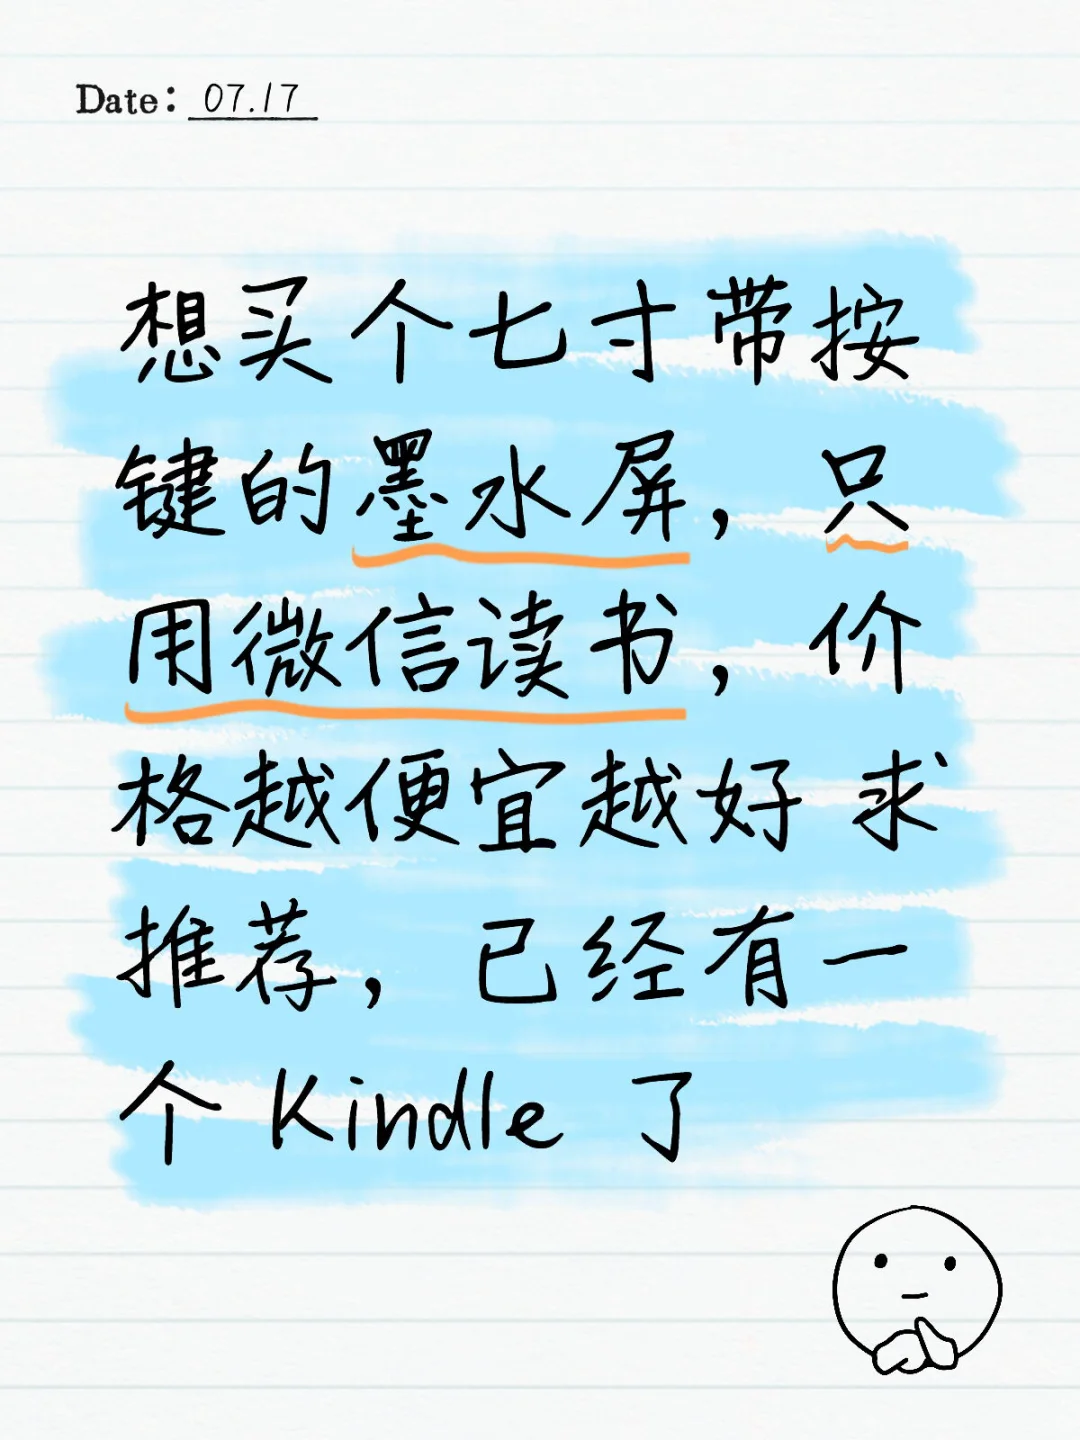 Date: 07.17
想买个七寸带按
键的墨水屏，只
用微信读书，价
格越便宜越好 求
推荐，已经有一
个 Kindle 了